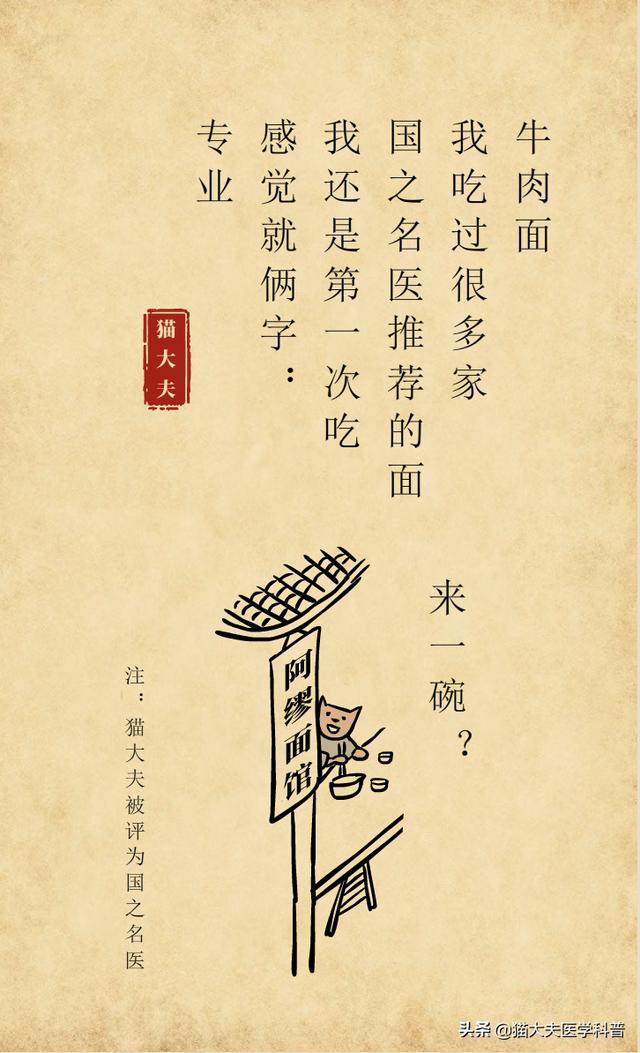 牛肉面
我吃过很多家
国之名医推荐的面
我还是第一次吃
感觉就俩字：
专业
猫大夫
来一碗？
阿缪面馆
注：猫大夫被评为国之名医
头条 @猫大夫医学科普